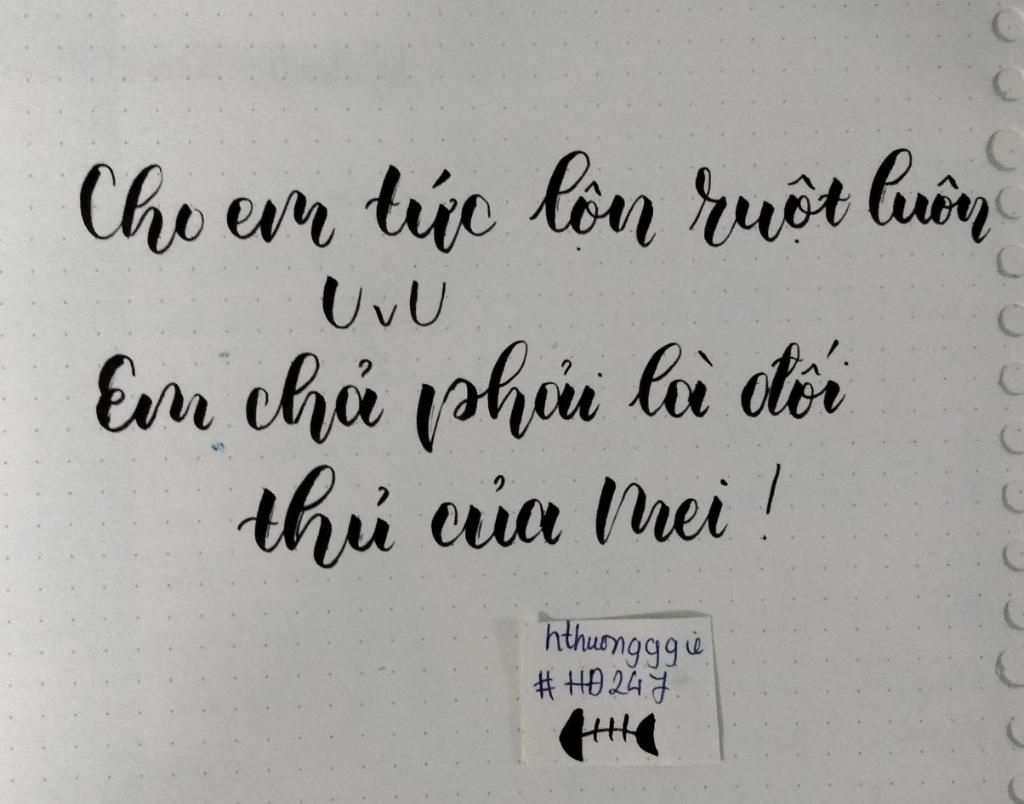 Cho em tức lộn ruột luôn
UvU
Em chả phải là đối
thủ của Mei !
hthuongggie
#HĐ247